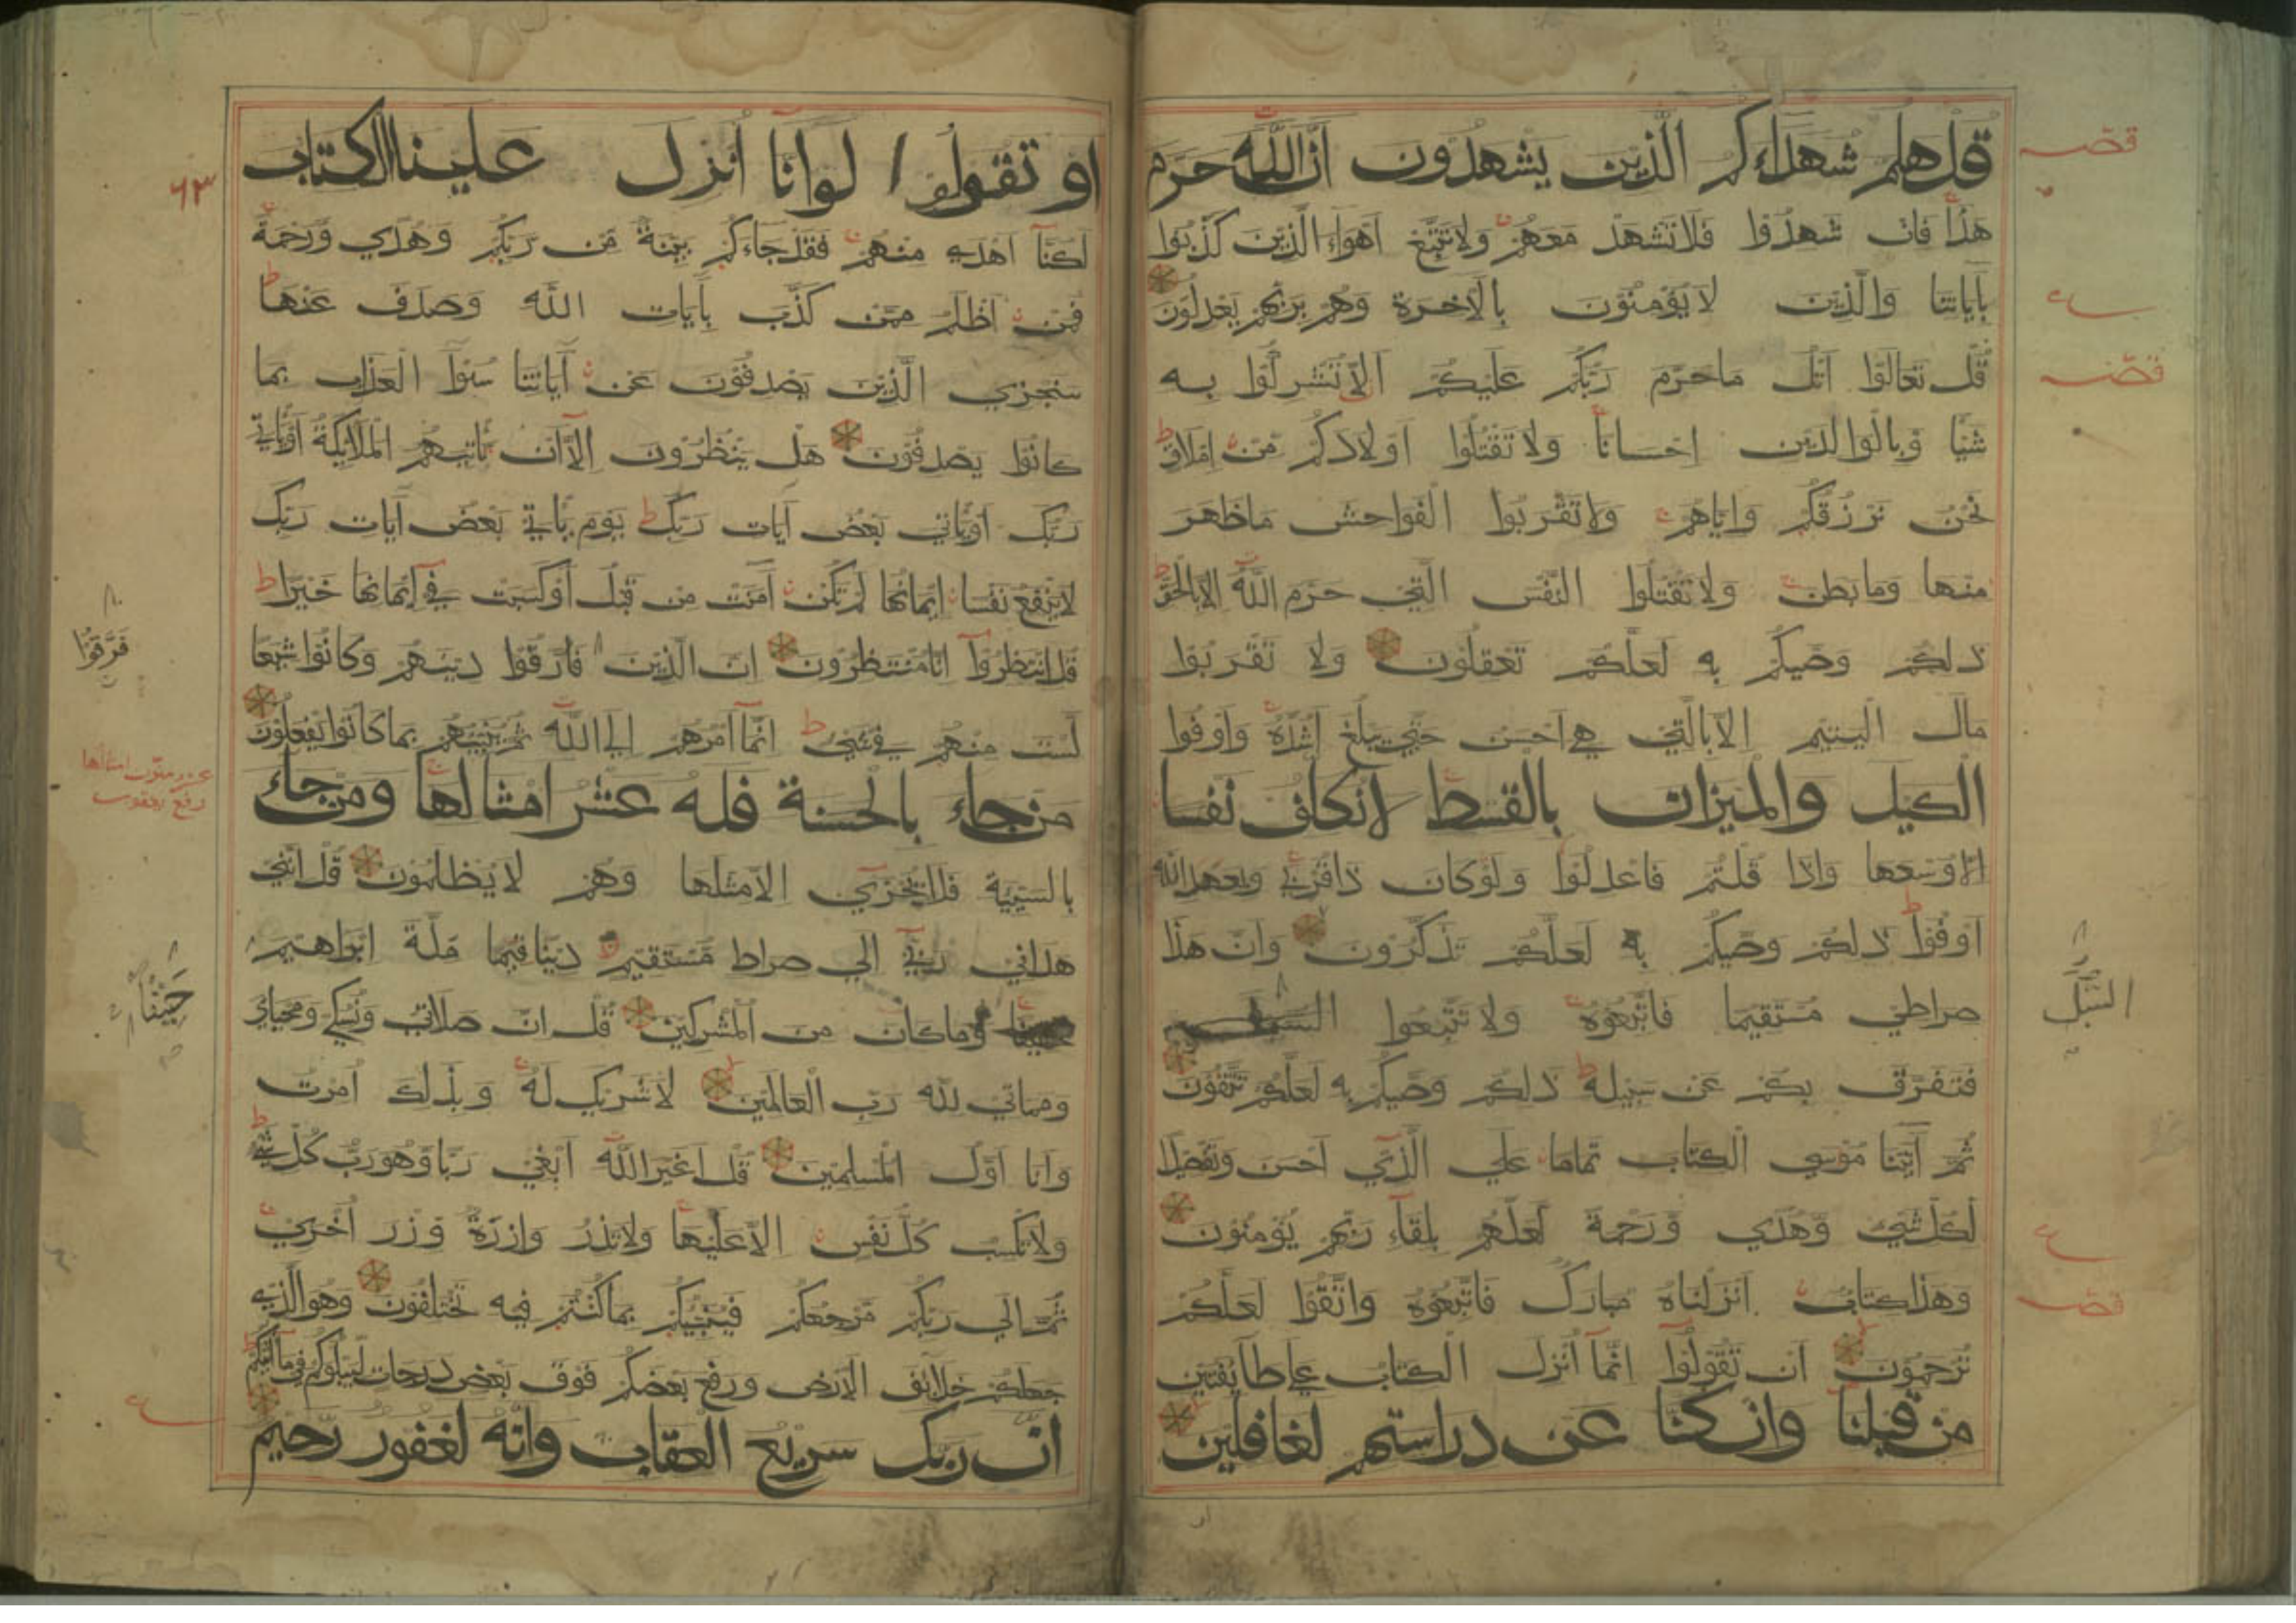 قل هلم شهداءكم الذين يشهدون ان الله حرم
هذا فان شهدوا فلا تشهد معهم ولا تتبع اهواء الذين كذبوا
بآياتنا والذين لا يؤمنون بالآخرة وهم بربهم يعدلون
قل تعالوا اتل ما حرم ربكم عليكم الا تشركوا به
شيا وبالوالدين احسانا ولا تقتلوا اولادكم من املاق
نحن نرزقكم واياهم ولا تقربوا الفواحش ما ظهر
منها وما بطن ولا تقتلوا النفس التي حرم الله الا بالحق
ذلكم وصيكم به لعلكم تعقلون ولا تقربوا
مال اليتيم الا بالتي هي احسن حتي يبلغ اشده واوفوا
الكيل والميزان بالقسط لا نكلف نفسا
الا وسعها واذا قلتم فاعدلوا ولو كان ذا قربي وبعهد الله
اوفوا ذلكم وصيكم به لعلكم تذكرون وان هذا
صراطي مستقيما فاتبعوه ولا تتبعوا
فتفرق بكم عن سبيله ذلكم وصيكم به لعلكم تتقون
ثم آتينا موسي الكتاب تماما علي الذي احسن وتفصيلا
لكل شيء وهدي ورحمة لعلهم بلقاء ربهم يؤمنون
وهذا كتاب انزلناه مبارك فاتبعوه واتقوا لعلكم
ترحمون ان تقولوا انما انزل الكتاب علي طايفتين
من قبلنا وان كنا عن دراستهم لغافلين
السبل
او تقولوا لو انا انزل علينا الكتاب
لكنا اهدي منهم فقد جاءكم بينة من ربكم وهدي ورحمة
فمن اظلم ممن كذب بآيات الله وصدف عنها
سنجزي الذين يصدفون عن آياتنا سوء العذاب بما
كانوا يصدفون هل ينظرون الا ان تاتيهم الملائكة او ياتي
ربك او ياتي بعض آيات ربك يوم ياتي بعض آيات ربك
لا ينفع نفسا ايمانها لم تكن آمنت من قبل او كسبت في ايمانها خيرا
قل انتظروا انا منتظرون ان الذين فارقوا دينهم وكانوا شيعا
لست منهم في شيء انما امرهم الي الله ثم ينبئهم بما كانوا يفعلون
من جاء بالحسنة فله عشر امثالها ومن جاء
بالسيئة فلا يجزي الا مثلها وهم لا يظلمون قل انني
هداني ربي الي صراط مستقيم دينا قيما ملة ابراهيم
وما كان من المشركين قل ان صلاتي ونسكي ومحياي
ومماتي لله رب العالمين لا شريك له وبذلك امرت
وانا اول المسلمين قل اغير الله ابغي ربا وهو رب كل شيء
ولا تكسب كل نفس الا عليها ولا تزر وازرة وزر اخري
ثم الي ربكم مرجعكم فينبئكم بما كنتم فيه تختلفون وهو الذي
جعلكم خلائف الارض ورفع بعضكم فوق بعض درجات ليبلوكم في ما آتيكم
ان ربك سريع العقاب وانه لغفور رحيم
فرقوا
حنيفا